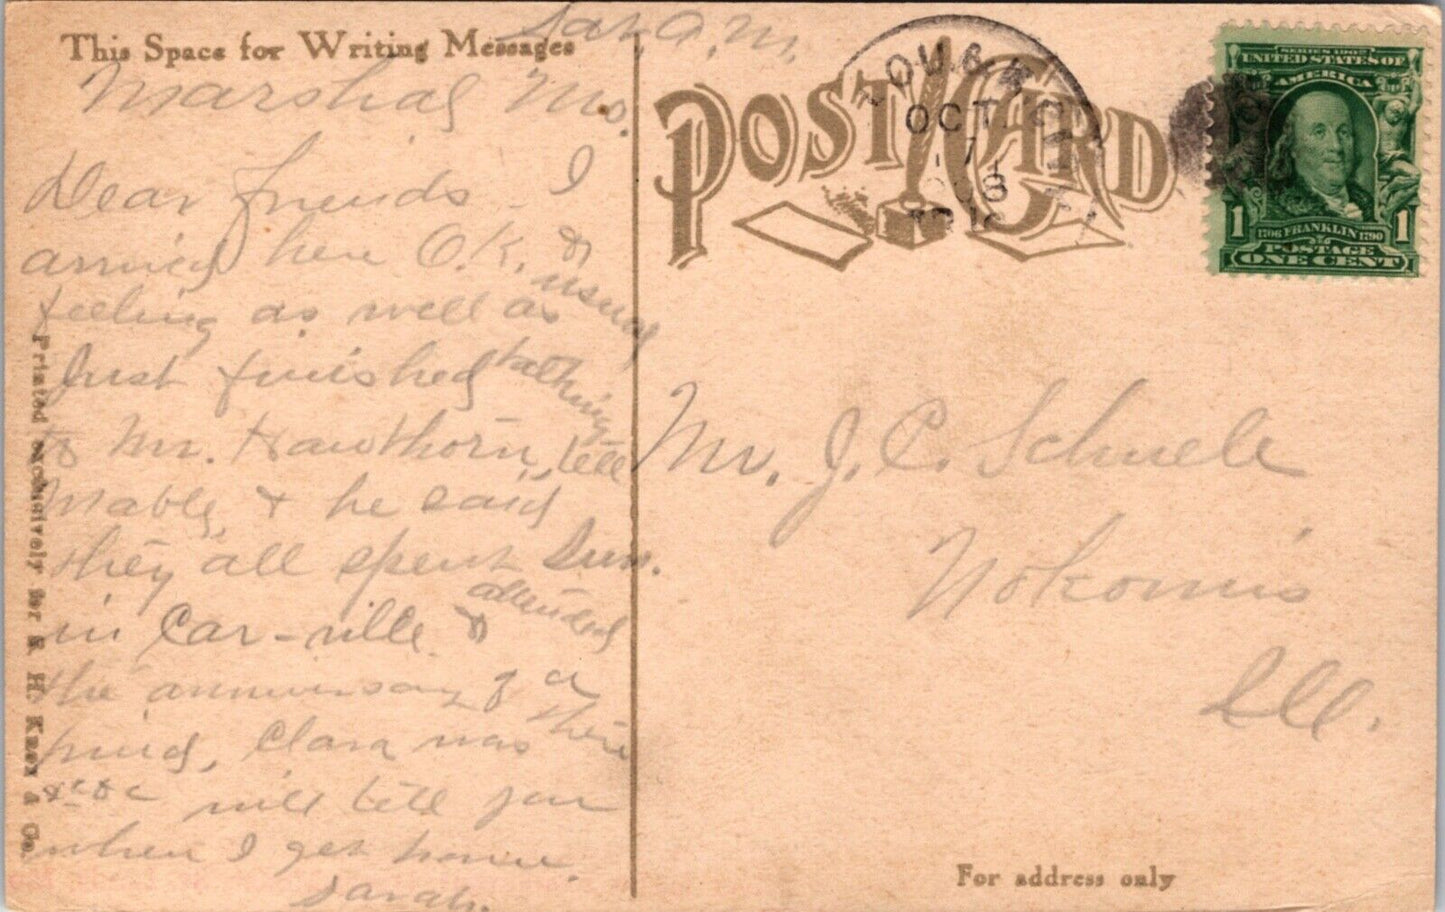 This Space for Writing Messages
Sat. A.M.
Marshall Mo.
Dear friends I
arrived here O.K. &
feeling as well as usual
Just finished talking
to Mr. Hawthorn, tell
Mable, & he said
they all spent Sun.
in Car-ville & attended
the anniversary of a
friend, Clara was there
&c &c will tell you
when I get home.
Sarah.
Printed exclusively for E. H. Knox & Co.
POST CARD
OCT
7
SERIES 1902
UNITED STATES OF
AMERICA
1 1706 FRANKLIN 1790 1
POSTAGE
ONE CENT
Mr. J. C.
Nokomis
Ill.
For address only